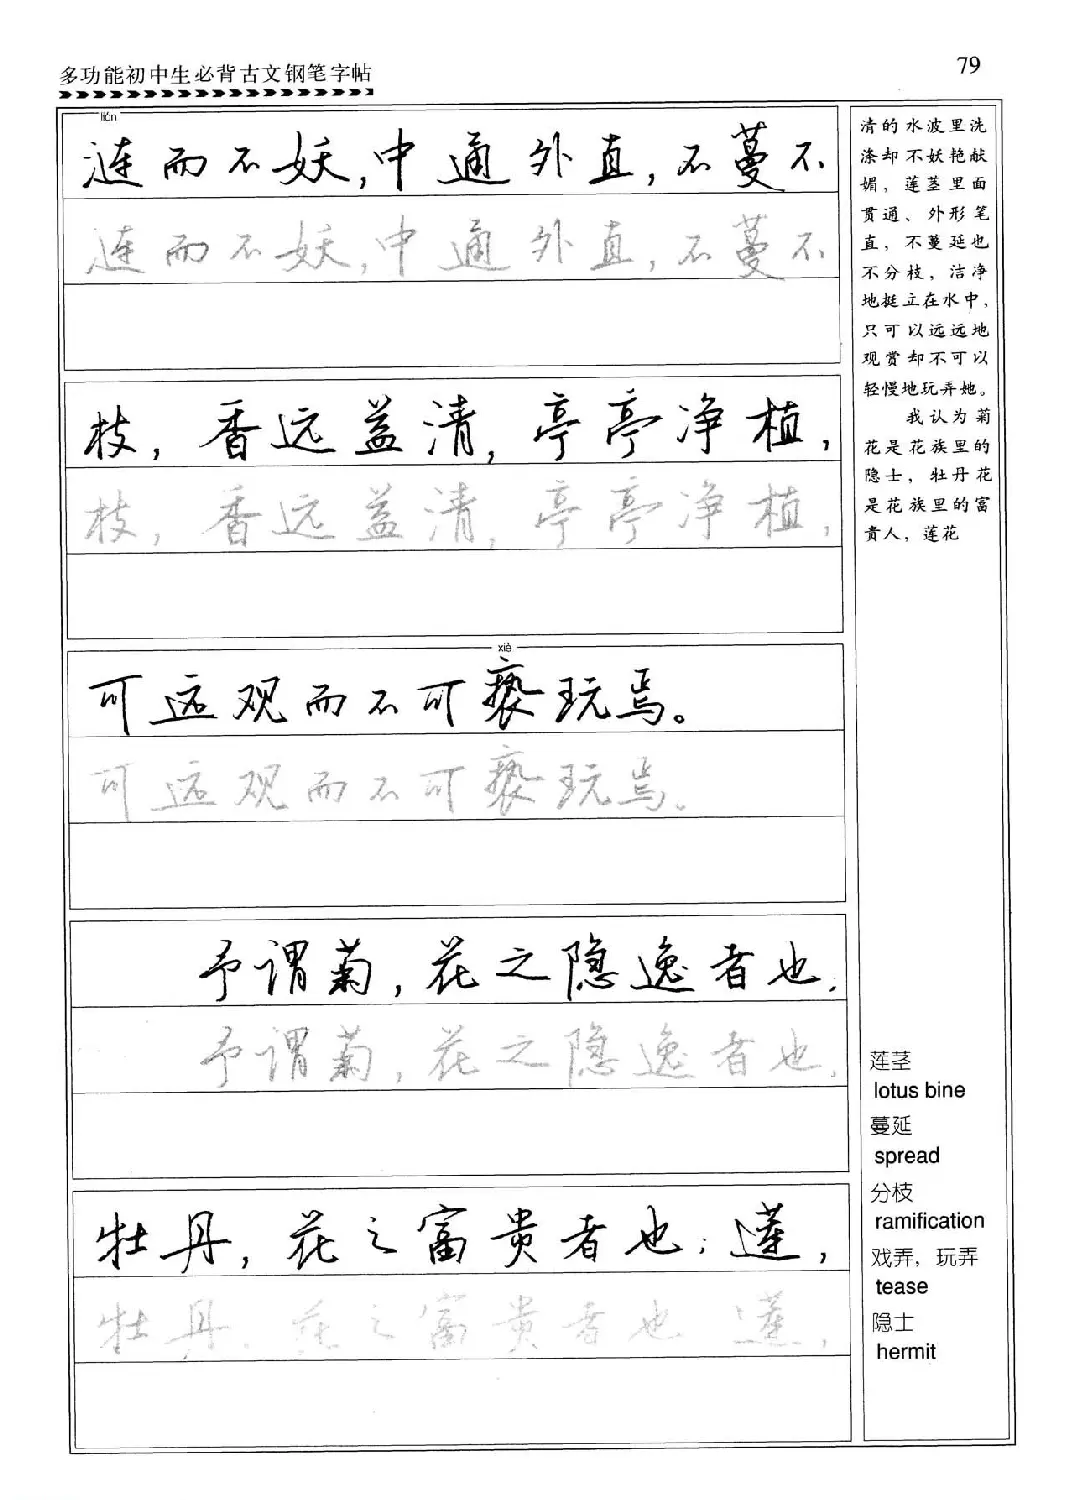 多功能初中生必背古文钢笔字帖
79
lián
涟而不妖,中通外直,不蔓不
涟而不妖,中通外直,不蔓不
枝,香远益清,亭亭净植,
枝,香远益清,亭亭净植,
xiè
可远观而不可亵玩焉。
可远观而不可亵玩焉。
予谓菊,花之隐逸者也;
予谓菊,花之隐逸者也;
牡丹,花之富贵者也;莲,
牡丹,花之富贵者也 莲,
清的水波里洗
涤却不妖艳献
媚，莲茎里面
贯通、外形笔
直，不蔓延也
不分枝，洁净
地挺立在水中，
只可以远远地
观赏却不可以
轻慢地玩弄她。
我认为菊
花是花族里的
隐士，牡丹花
是花族里的富
贵人，莲花
莲茎
lotus bine
蔓延
spread
分枝
ramification
戏弄，玩弄
tease
隐士
hermit